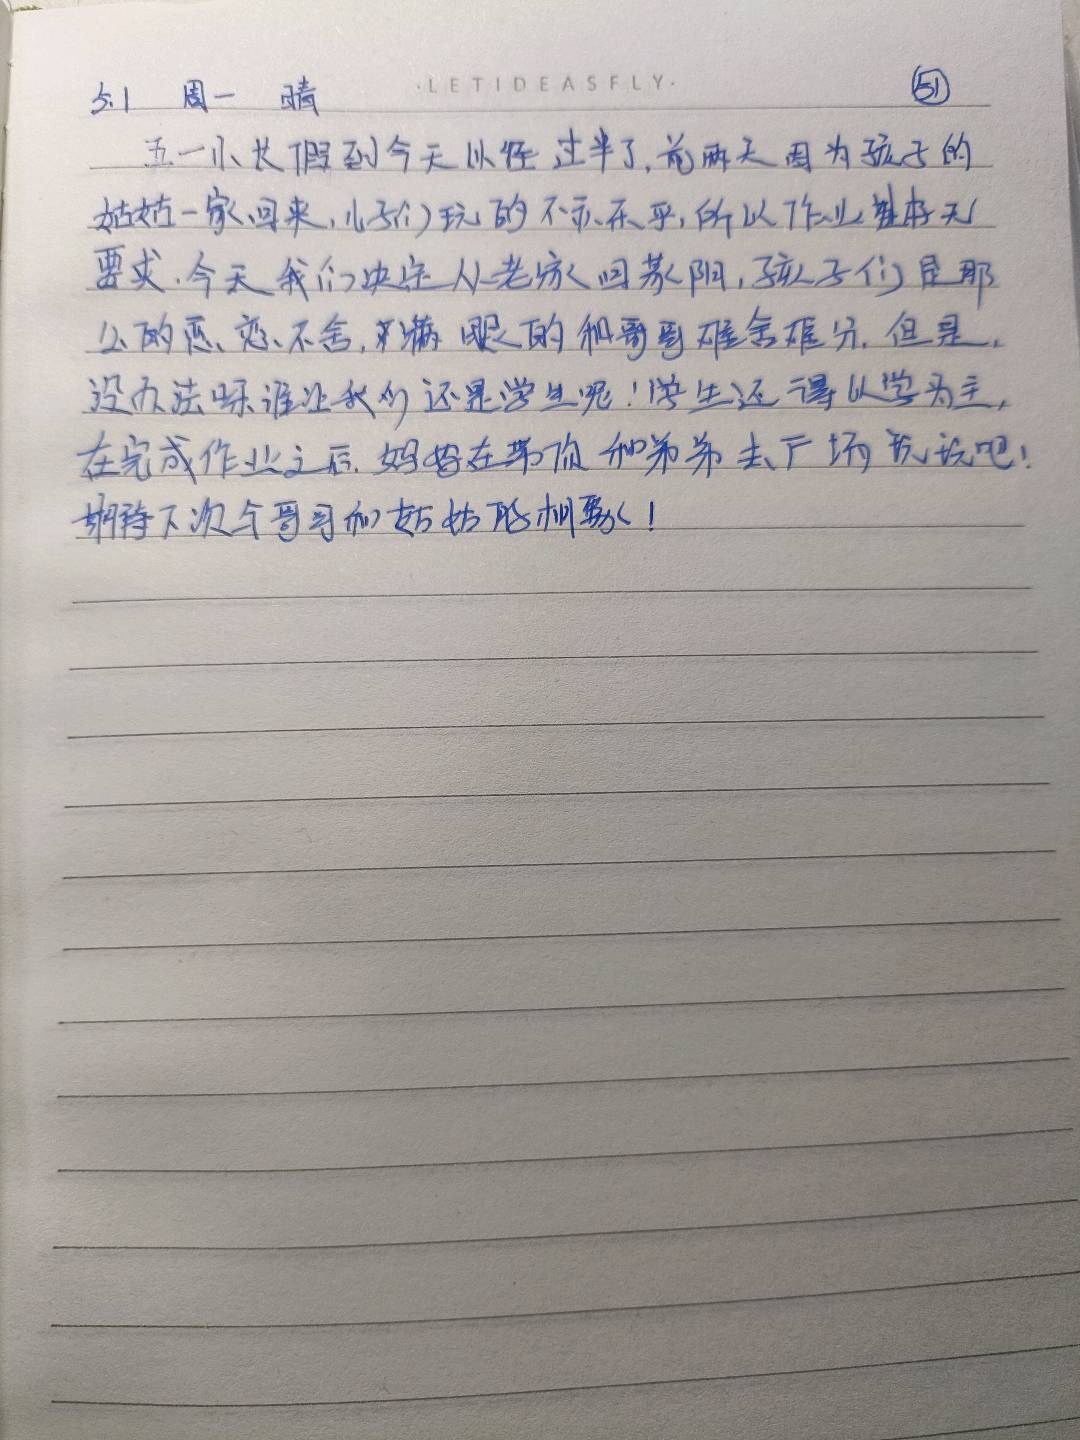 ·LETIDEASFLY·
5.1 周一 晴 51
五一小长假到今天以经过半了,前两天因为孩子的
姑姑一家回来,儿子们玩的不亦乐乎,所以作业基本无
要求.今天我们决定从老家回莱阳,孩子们是那
么的恋恋不舍,满眼的和哥哥难舍难分.但是,
没办法呀谁让我们还是学生呢!学生还得以学为主,
在完成作业之后妈妈在带你和弟弟去广场玩玩吧!
期待下次与哥哥和姑姑的相聚!